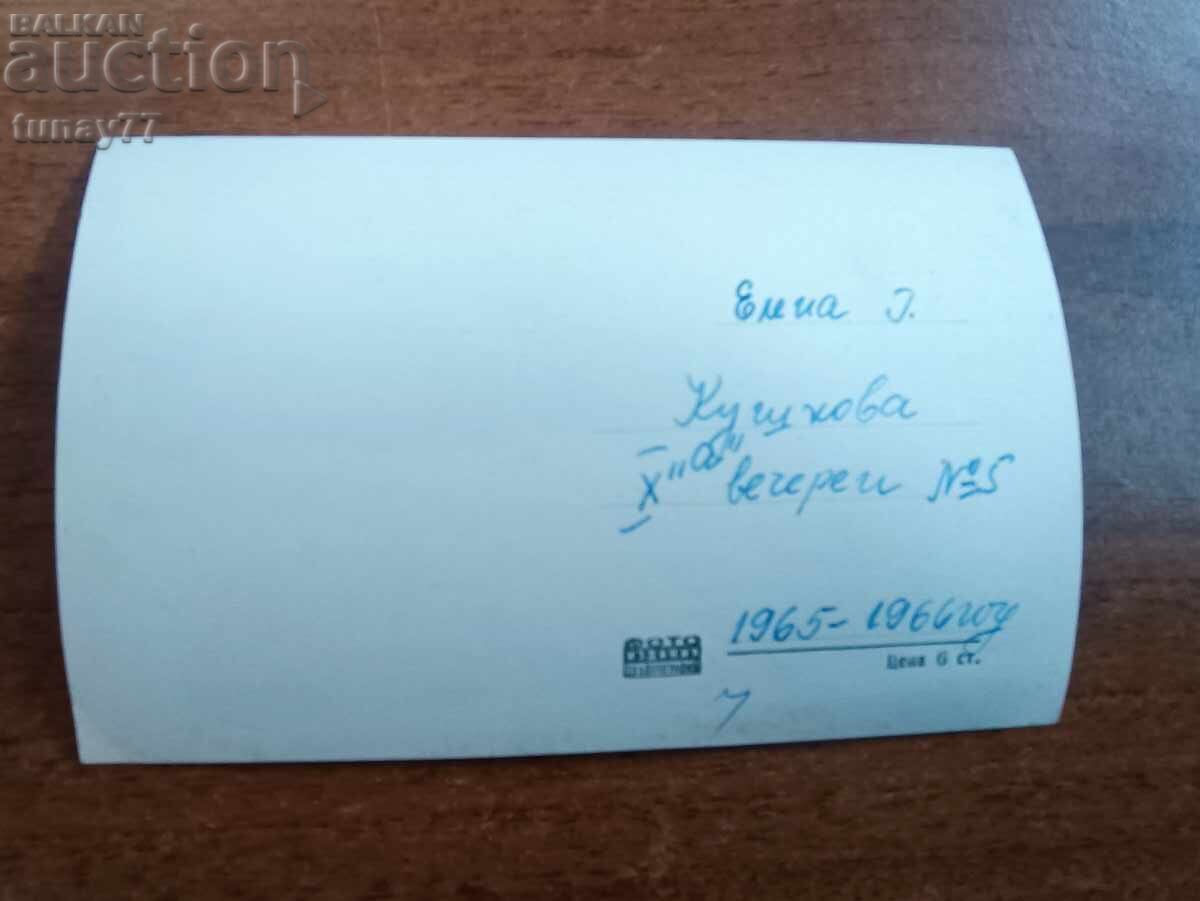 BALKAN
auction
tunay77
Елиа Г.
X "об" вечерен №5
1965-1966 год
ФОТО
Цена 6 ст.
7